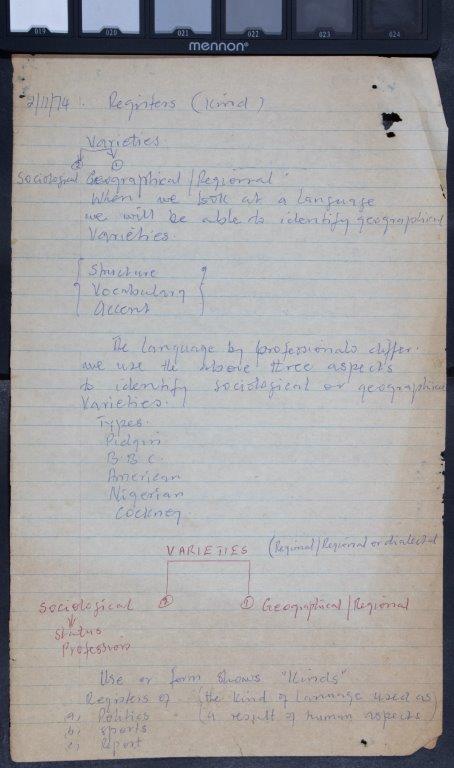 019 020 021 022 023 024
mennon
2/11/74. Registers (Kind)
Varieties
② ①
Sociological Geographical/Regional
When we look at a language
we will be able to identify geographical
Varieties.
Structure
Vocabulary
Accent
The language by professionals differ.
we use the above three aspects
to identify sociological or geographical
Varieties.
Types.
Pidgin
B.B.C.
American
Nigerian
Cockney
VARIETIES (Regional/Regional or dialectal
Sociological ② ① Geographical/Regional
Status
Profession
Use or form shows "Kinds"
Registers of (the kind of language used as
a, Politics (a result of human aspects)
b, sports
c, Report